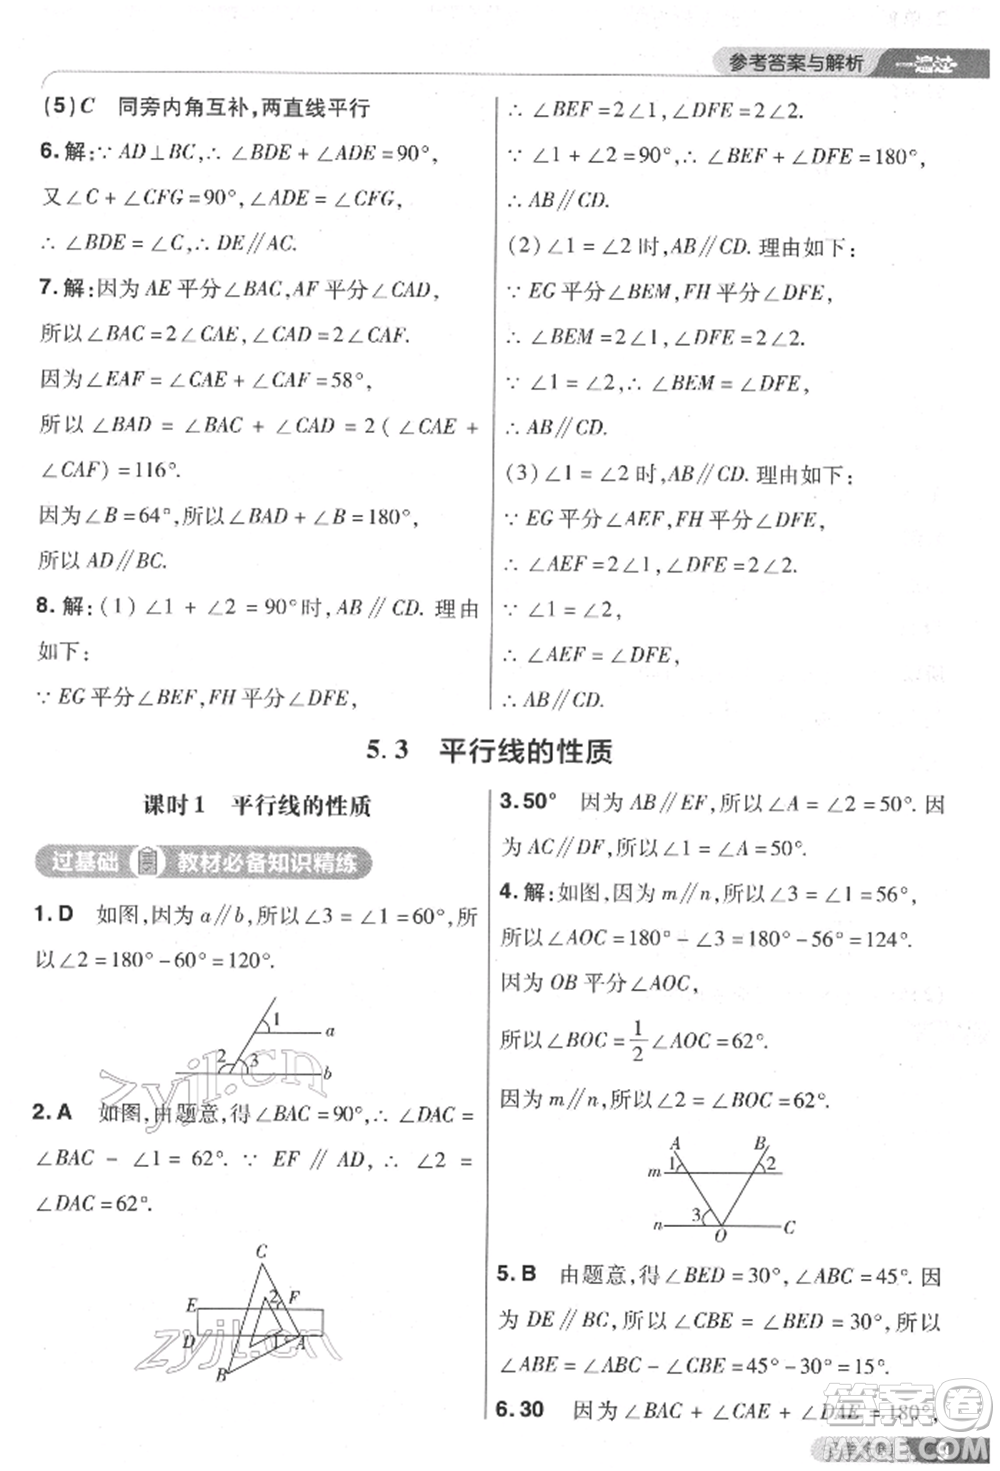 参考答案与解析 一遍过
(5)C 同旁内角互补,两直线平行
6.解:∵AD⊥BC,∴∠BDE+∠ADE=90°,
又∠C+∠CFG=90°,∠ADE=∠CFG,
∴∠BDE=∠C,∴DE∥AC.
7.解:因为AE平分∠BAC,AF平分∠CAD,
所以∠BAC=2∠CAE,∠CAD=2∠CAF.
因为∠EAF=∠CAE+∠CAF=58°,
所以∠BAD=∠BAC+∠CAD=2(∠CAE+
∠CAF)=116°.
因为∠B=64°,所以∠BAD+∠B=180°,
所以AD∥BC.
8.解:(1)∠1+∠2=90°时,AB∥CD.理由
如下:
∵EG平分∠BEF,FH平分∠DFE,
∴∠BEF=2∠1,∠DFE=2∠2.
∵∠1+∠2=90°,∴∠BEF+∠DFE=180°,
∴AB∥CD.
(2)∠1=∠2时,AB∥CD.理由如下:
∵EG平分∠BEM,FH平分∠DFE,
∴∠BEM=2∠1,∠DFE=2∠2.
∵∠1=∠2,∴∠BEM=∠DFE,
∴AB∥CD.
(3)∠1=∠2时,AB∥CD.理由如下:
∵EG平分∠AEF,FH平分∠DFE,
∴∠AEF=2∠1,∠DFE=2∠2.
∵∠1=∠2,
∴∠AEF=∠DFE,
∴AB∥CD.
5.3 平行线的性质
课时1 平行线的性质
过基础 教材必备知识精练
1.D 如图,因为a∥b,所以∠3=∠1=60°,所
以∠2=180°-60°=120°.
1
a
2 3
b
2.A 如图,由题意,得∠BAC=90°,∴∠DAC=
∠BAC-∠1=62°.∵EF∥AD,∴∠2=
∠DAC=62°.
C
E 2 F
D 1 A
B
3.50° 因为AB∥EF,所以∠A=∠2=50°.因
为AC∥DF,所以∠1=∠A=50°.
4.解:如图,因为m∥n,所以∠3=∠1=56°,
所以∠AOC=180°-∠3=180°-56°=124°.
因为OB平分∠AOC,
所以∠BOC=1/2∠AOC=62°.
因为m∥n,所以∠2=∠BOC=62°.
A B
m 1 2
3
n O C
5.B 由题意,得∠BED=30°,∠ABC=45°.因
为DE∥BC,所以∠CBE=∠BED=30°,所以
∠ABE=∠ABC-∠CBE=45°-30°=15°.
6.30 因为∠BAC+∠CAE+∠DAE=180°,
zyjl.cn
zyjl.cn
答案圈
9